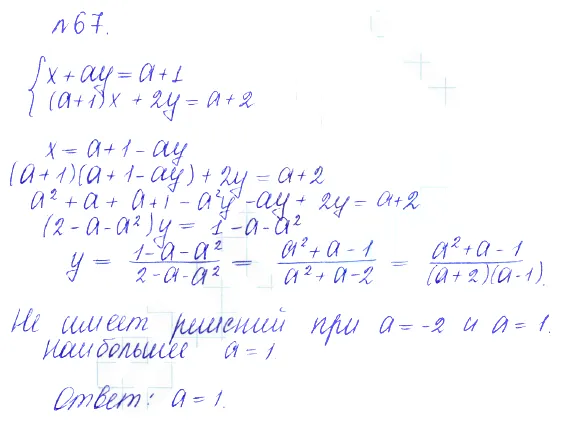 №67.
{ x + ay = a + 1
(a+1)x + 2y = a + 2
x = a + 1 - ay
(a+1)(a+1-ay) + 2y = a + 2
a² + a + a + 1 - a²y - ay + 2y = a + 2
(2 - a - a²)y = 1 - a - a²
y = (1-a-a²)/(2-a-a²) = (a²+a-1)/(a²+a-2) = (a²+a-1)/((a+2)(a-1)).
Не имеет решений при a = -2 и a = 1.
наибольшее a = 1
Ответ: a = 1.